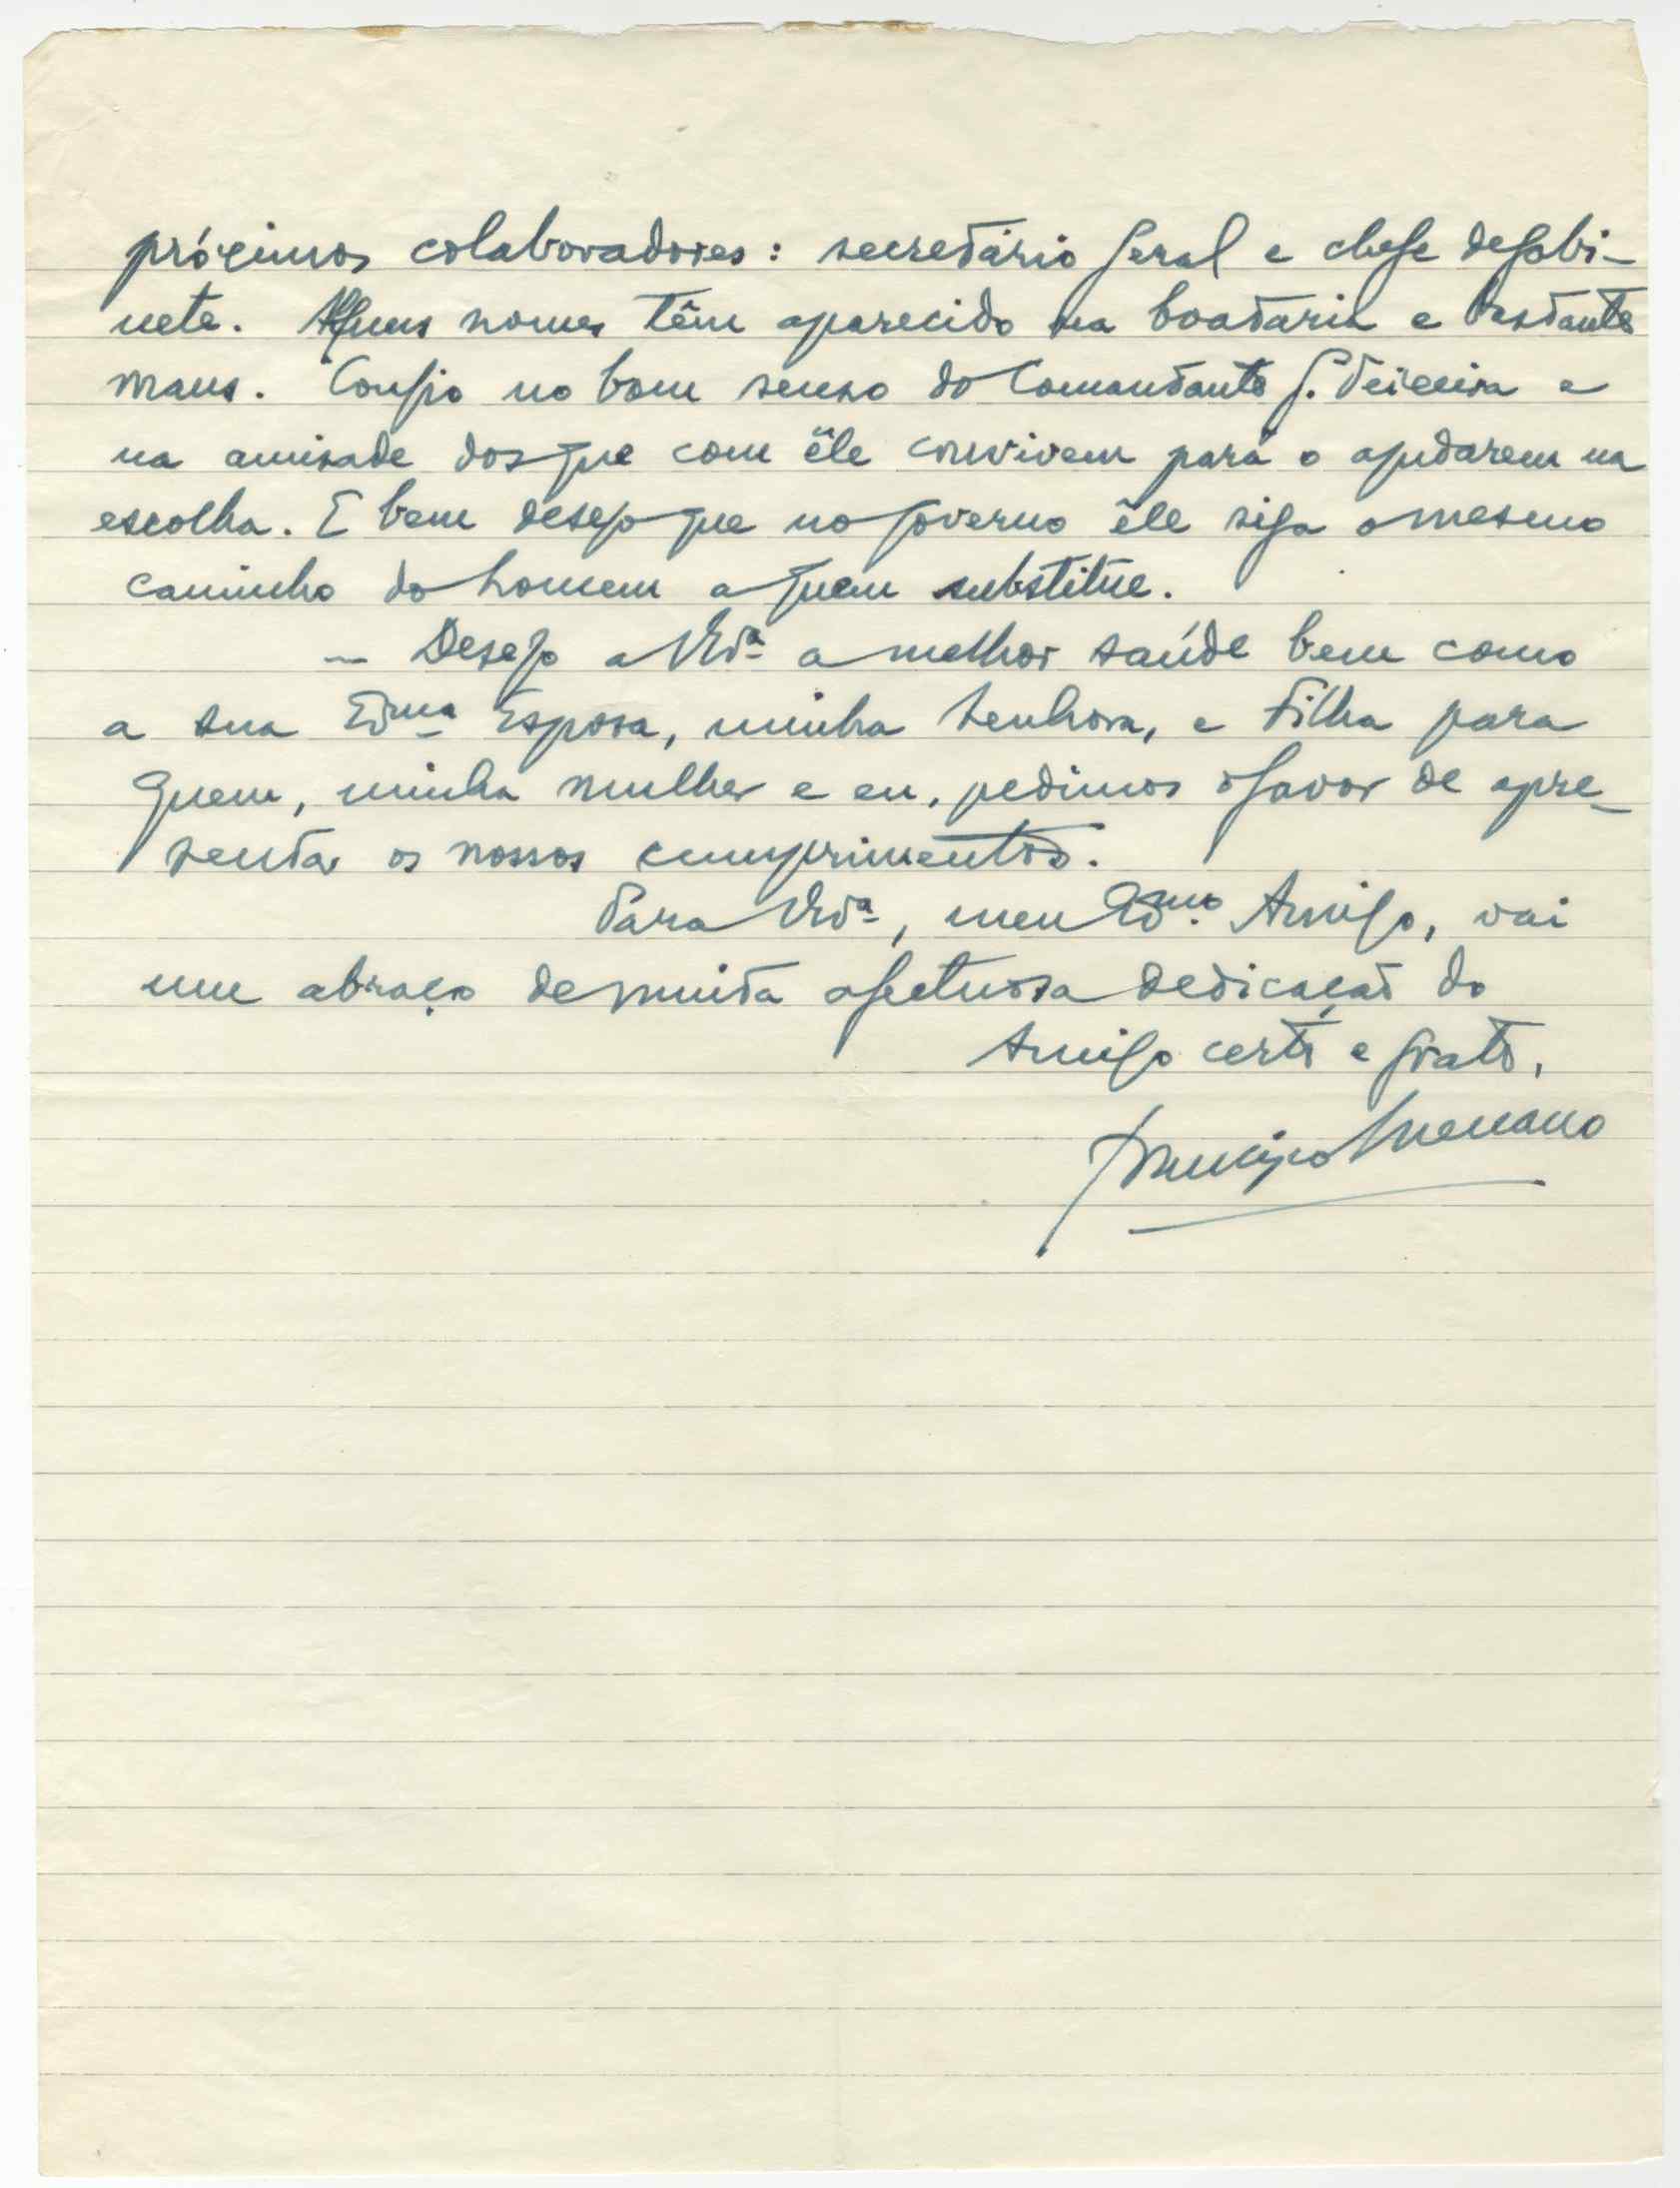 próximos colaboradores: secretário geral e chefe de gabi-
nete. Alguns nomes têm aparecido na boataria e bastante
maus. Confio no bom senso do Comandante G. Teixeira e
na amisade dos que com êle convivem para o ajudarem na
escolha. E bem desejo que no governo êle siga o mesmo
caminho do homem a quem substitue.
— Desejo a VExª a melhor saúde bem como
a sua Exma Esposa, minha Senhora, e Filha para
quem, minha mulher e eu, pedimos o favor de apre-
sentar os nossos cumprimentos.
Para VExª, meu Exmo. Amigo, vai
um abraço de muita afectuosa dedicação do
Amigo certo e grato,